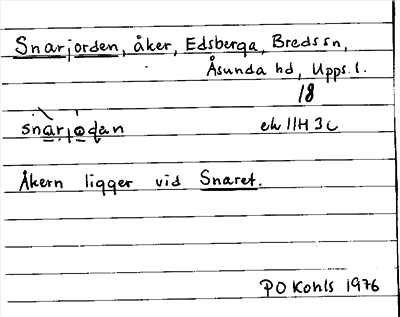 Snarjorden, åker, Edsberga, Breds sn,
Åsunda hd, Upps. l.
18
snàrjo̱dan ek 11H 3c
Åkern ligger vid Snaret.
P O Kohls 1976